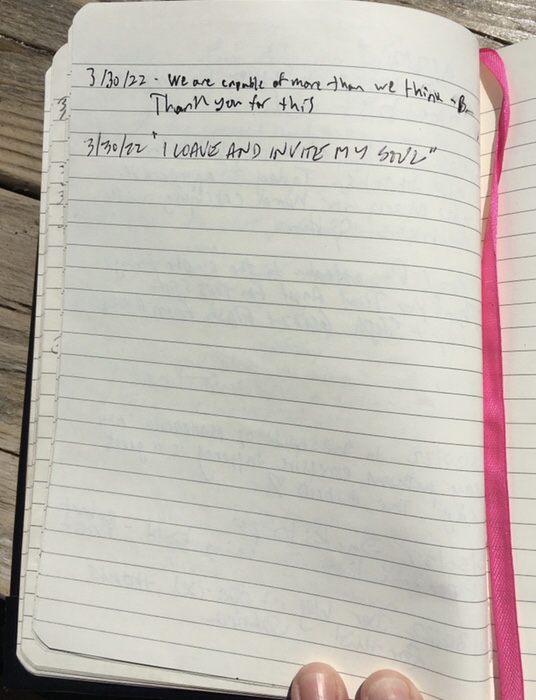 3/30/22 - We are capable of more than we think - B
Thank you for this
3/30/22 "I LOAVE AND INVITE MY SOUL"